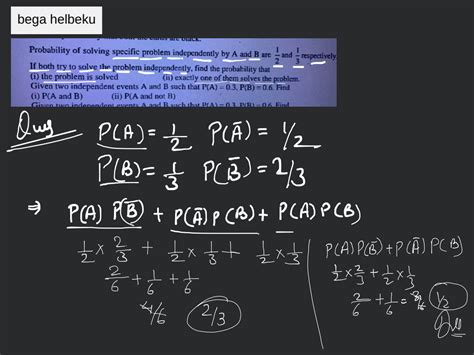 bega helbeku
Probability of solving specific problem independently by A and B are 1/2 and 1/3 respectively.
If both try to solve the problem independently, find the probability that
(i) the problem is solved (ii) exactly one of them solves the problem.
Given two independent events A and B such that P(A) = 0.3, P(B) = 0.6. Find
(i) P(A and B) (ii) P(A and not B)
Given two independent events A and B such that P(A) = 0.3, P(B) = 0.6. Find
Ques P(A) = 1/2 P(Ā) = 1/2
P(B) = 1/3 P(B̄) = 2/3
⇒ P(A) P(B̄) + P(Ā) P(B) + P(A) P(B)
1/2 × 2/3 + 1/2 × 1/3 + 1/2 × 1/3
2/6 + 1/6 + 1/6
4/6 2/3
P(A) P(B̄) + P(Ā) P(B)
1/2 × 2/3 + 1/2 × 1/3
2/6 + 1/6 = 3/6 1/2